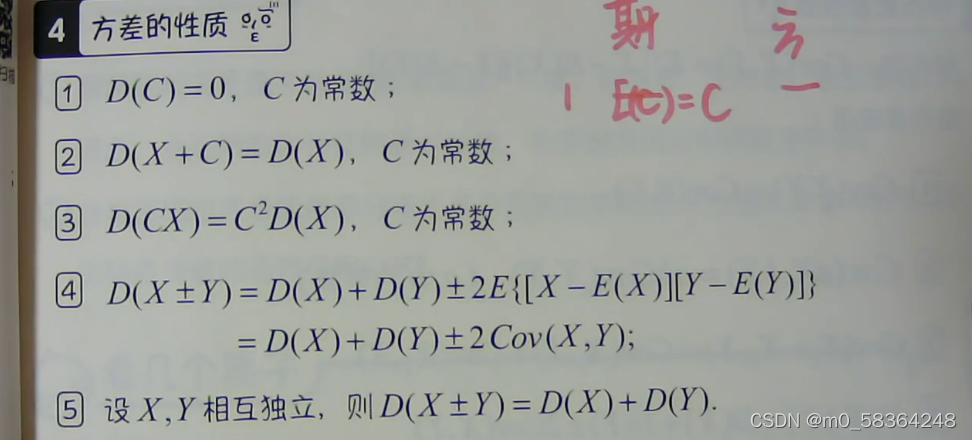 4 方差的性质
期 方
1 D(C)=0, C 为常数;
1 E(C)=C 一
2 D(X+C)=D(X), C 为常数;
3 D(CX)=C²D(X), C 为常数;
4 D(X±Y)=D(X)+D(Y)±2E{[X−E(X)][Y−E(Y)]}
=D(X)+D(Y)±2Cov(X,Y);
5 设 X,Y 相互独立, 则 D(X±Y)=D(X)+D(Y).
CSDN @m0_58364248